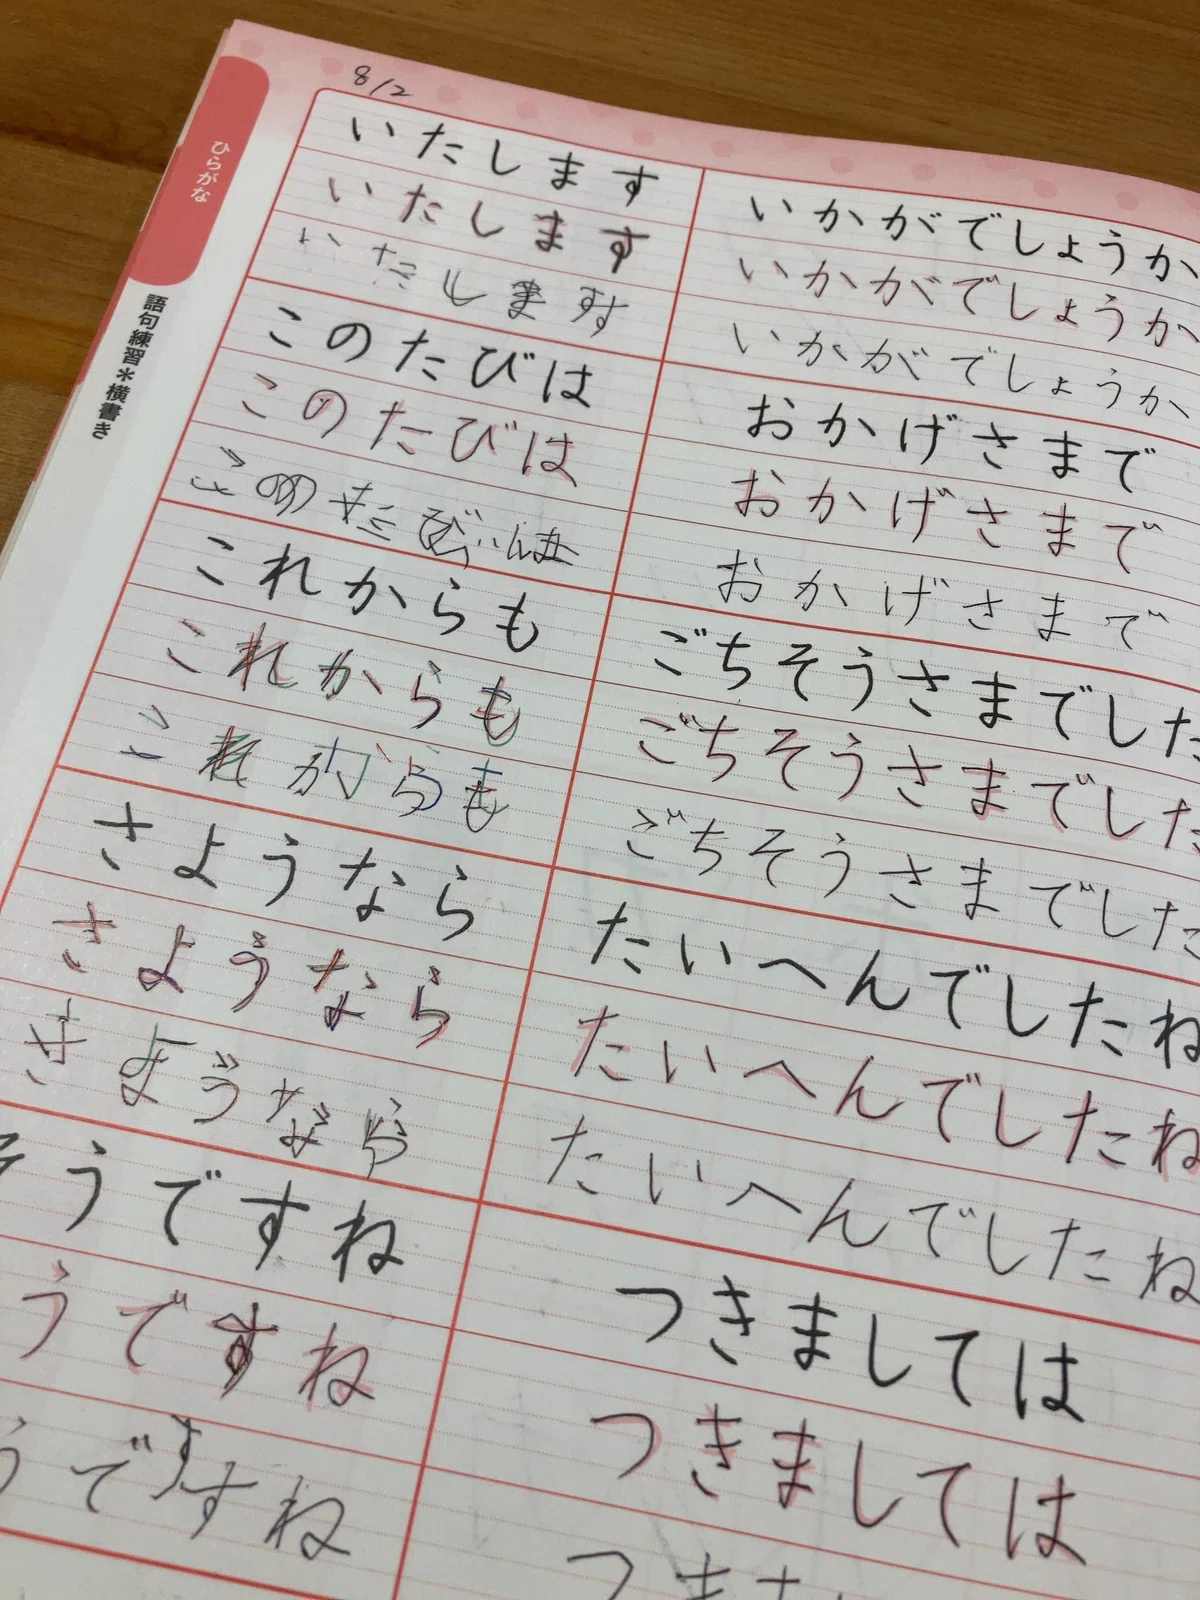 8/2
ひらがな
語句練習＊横書き
いたします
いたします
いたします
このたびは
このたびは
このたびは
これからも
これからも
これからも
さようなら
さようなら
さようなら
そうですね
うですね
うですね
いかがでしょうか
いかがでしょうか
いかがでしょうか
おかげさまで
おかげさまで
おかげさまで
ごちそうさまでした
ごちそうさまでした
ごちそうさまでした
たいへんでしたね
たいへんでしたね
たいへんでしたね
つきましては
つきましては
つきま